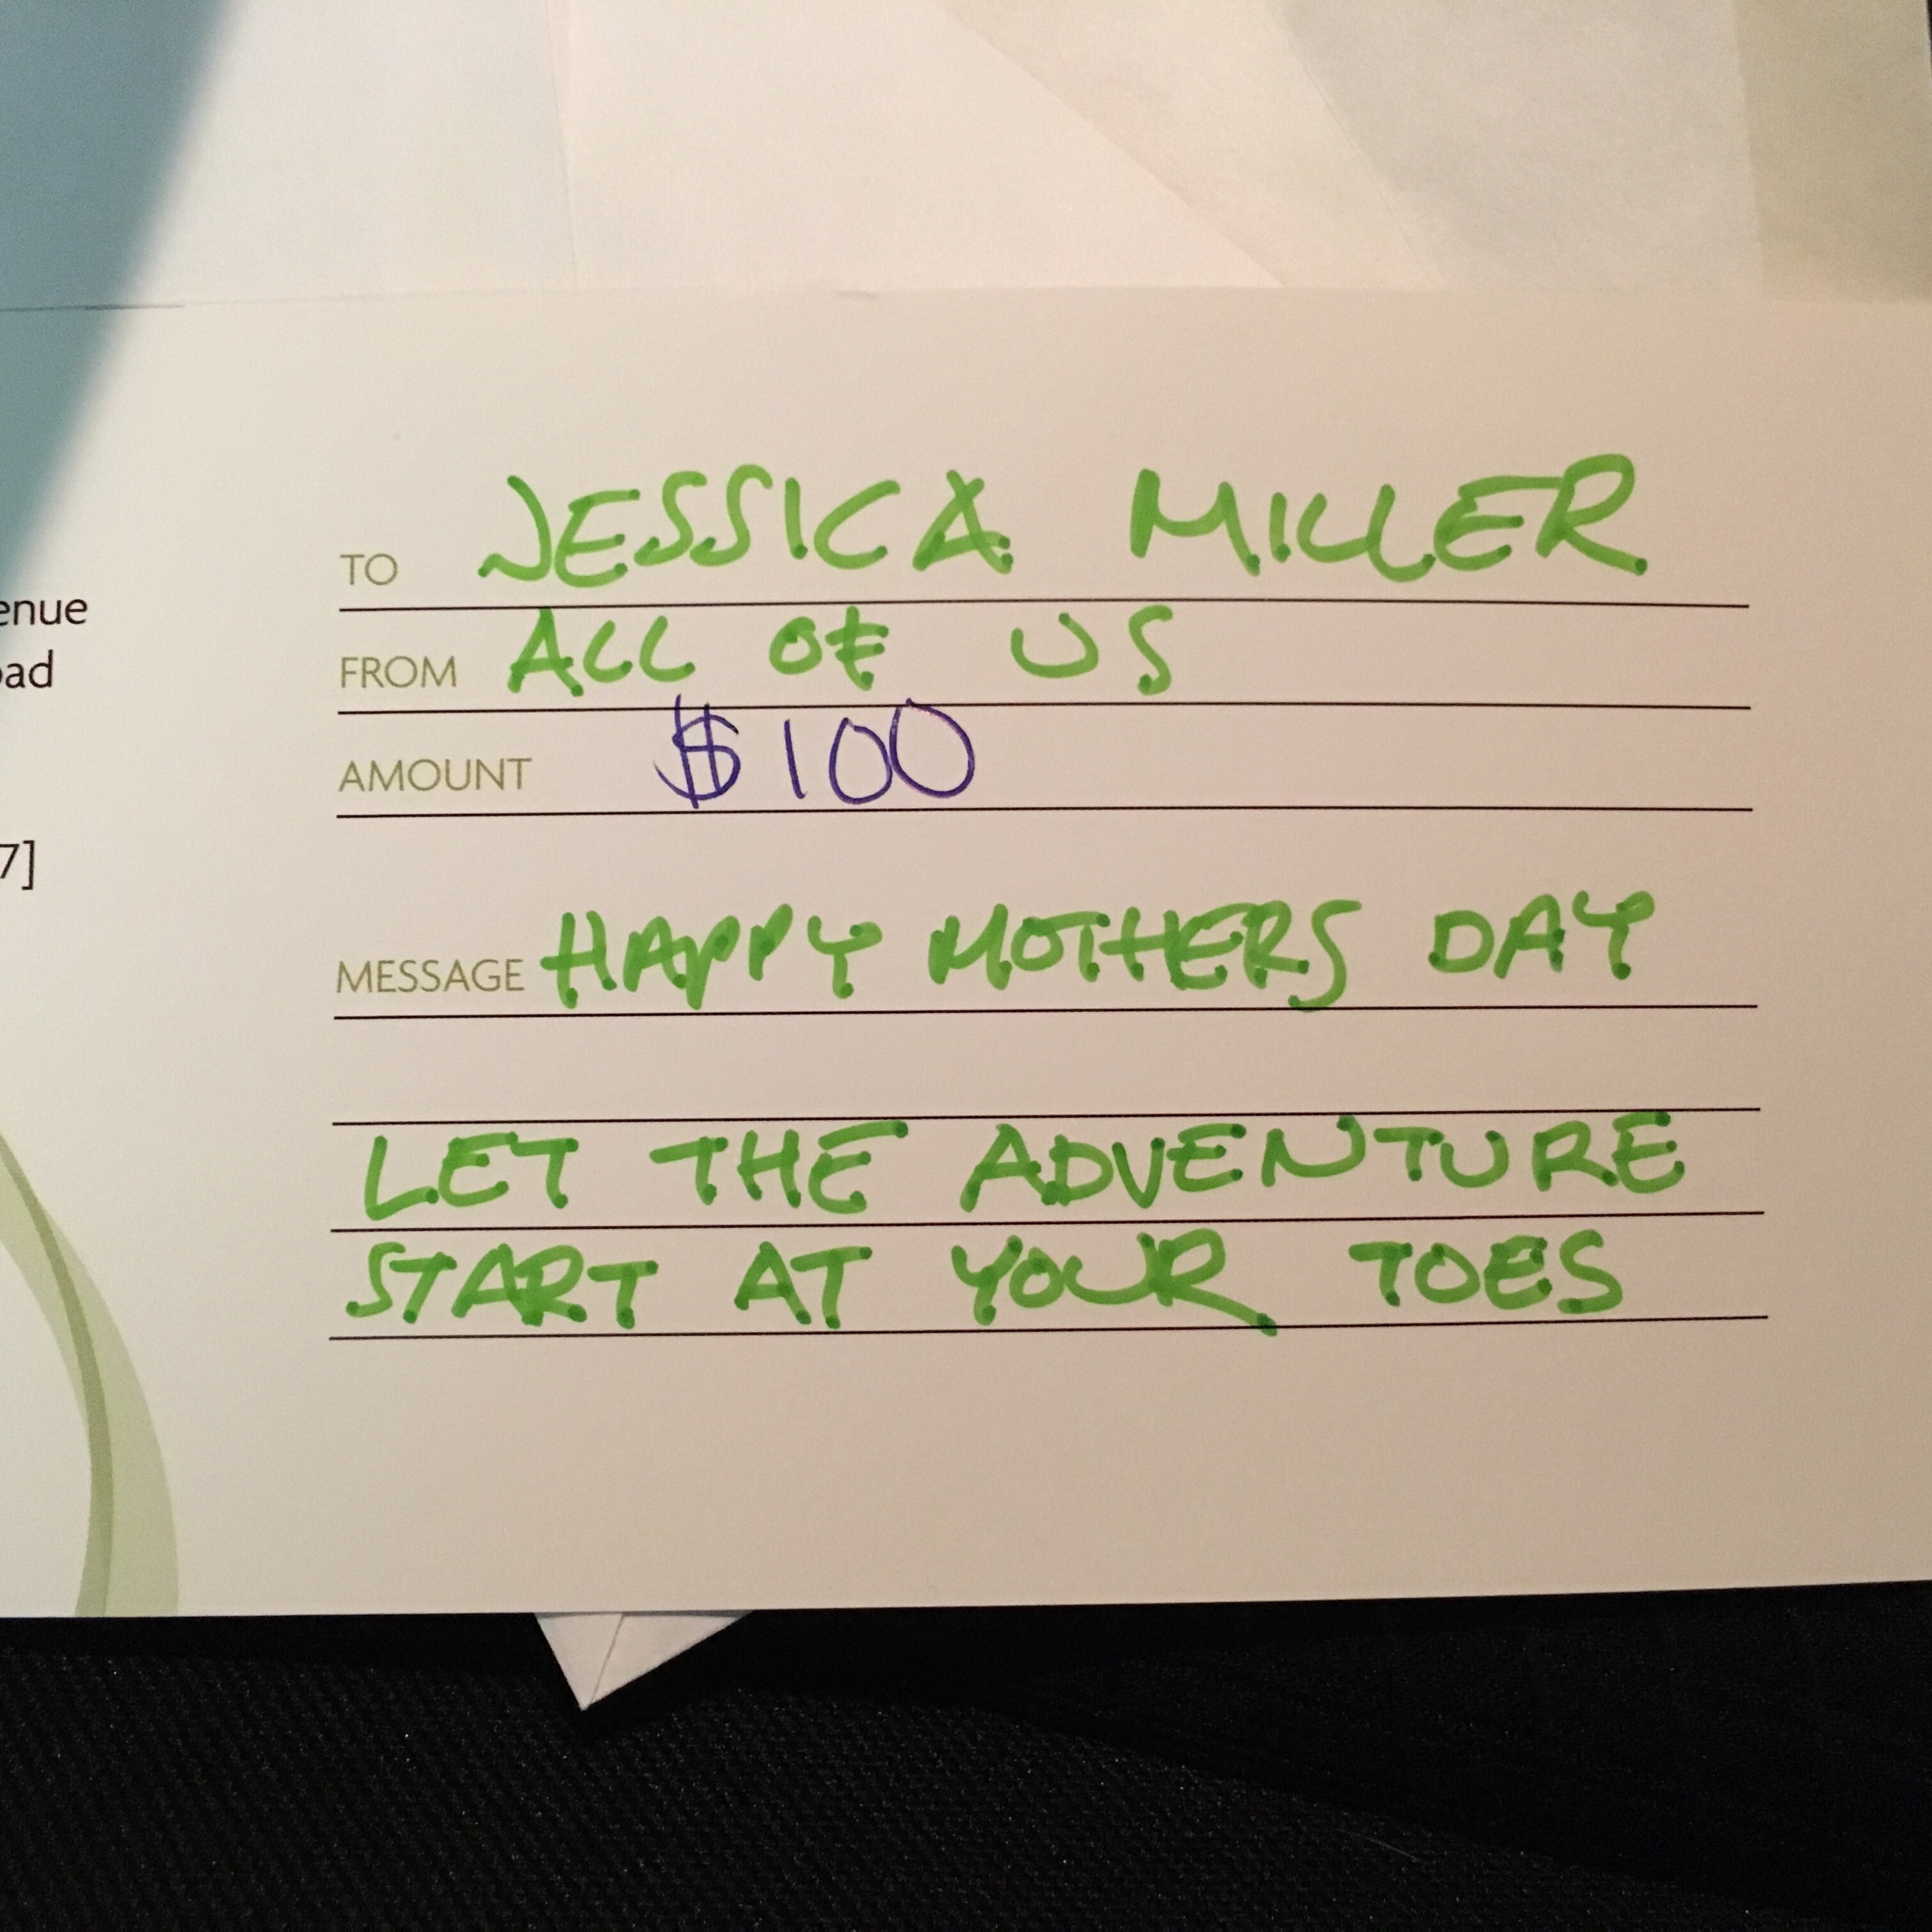 enue
oad
7]
TO JESSICA MILLER
FROM ALL OF US
AMOUNT $100
MESSAGE HAPPY MOTHERS DAY
LET THE ADVENTURE
START AT YOUR TOES